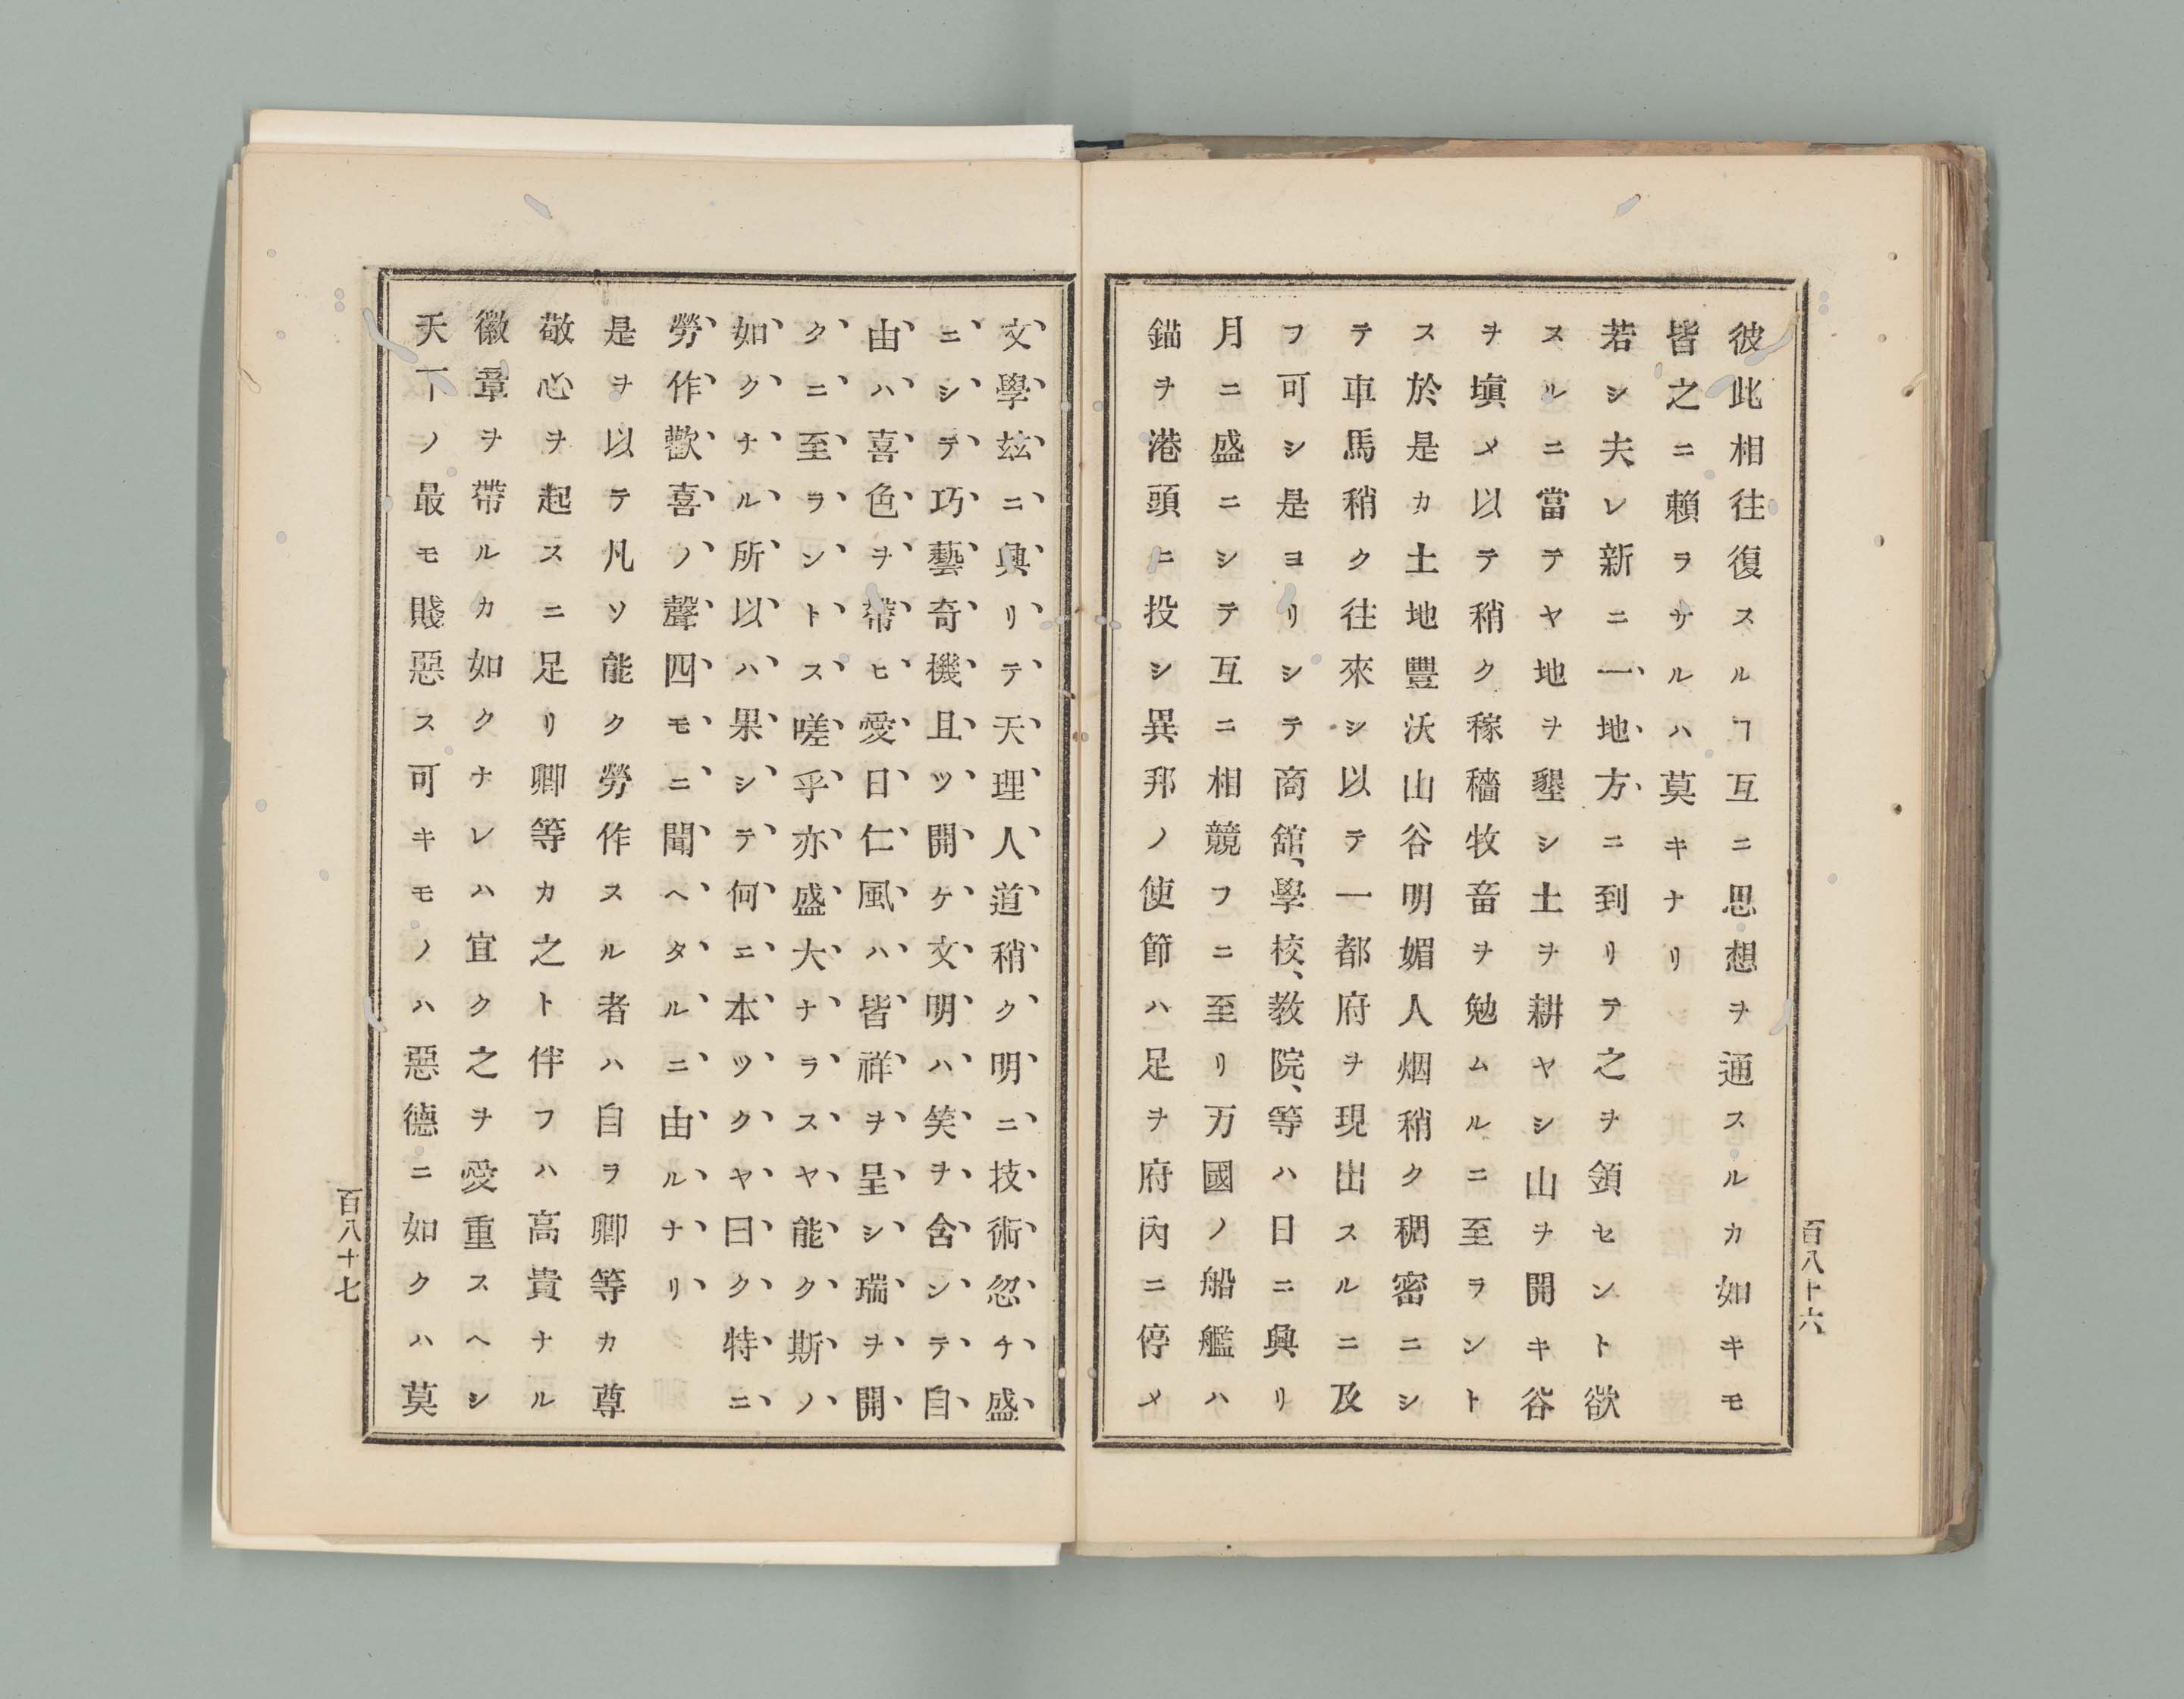 彼此相往復スルヿ互ニ思想ヲ通スルカ如キモ
皆之ニ賴ラサルハ莫キナリ
若シ夫レ新ニ一地方ニ到リテ之ヲ領セント欲
スルニ當テヤ地ヲ墾シ土ヲ耕ヤシ山ヲ開キ谷
ヲ塡メ以テ稍ク稼穡牧畜ヲ勉ムルニ至ラント
ス於是カ土地豐沃山谷明媚人烟稍ク稠密ニシ
テ車馬稍ク往來シ以テ一都府ヲ現出スルニ及
フ可シ是ヨリシテ商舘、學校、敎院、等ハ日ニ興リ
月ニ盛ニシテ互ニ相競フニ至リ万國ノ船艦ハ
錨ヲ港頭ニ投シ異邦ノ使節ハ足ヲ府內ニ停メ
百八十六
文學玆ニ興リテ天理人道稍ク明ニ技術忽チ盛
ニシテ巧藝奇機且ツ開ケ文明ハ笑ヲ含ンテ自
由ハ喜色ヲ帶ヒ愛日仁風ハ皆祥ヲ呈シ瑞ヲ開
クニ至ラントス嗟乎亦盛大ナラスヤ能ク斯ノ
如クナル所以ハ果シテ何エ本ツクヤ曰ク特ニ
勞作歡喜ノ聲四モニ聞ヘタルニ由ルナリ
是ヲ以テ凡ソ能ク勞作スル者ハ自ヲ卿等カ尊
敬心ヲ起スニ足リ卿等カ之ト伴フハ高貴ナル
徽章ヲ帶ルカ如クナレハ宜ク之ヲ愛重スヘシ
天下ノ最モ賤惡ス可キモノハ惡德ニ如クハ莫
百八十七